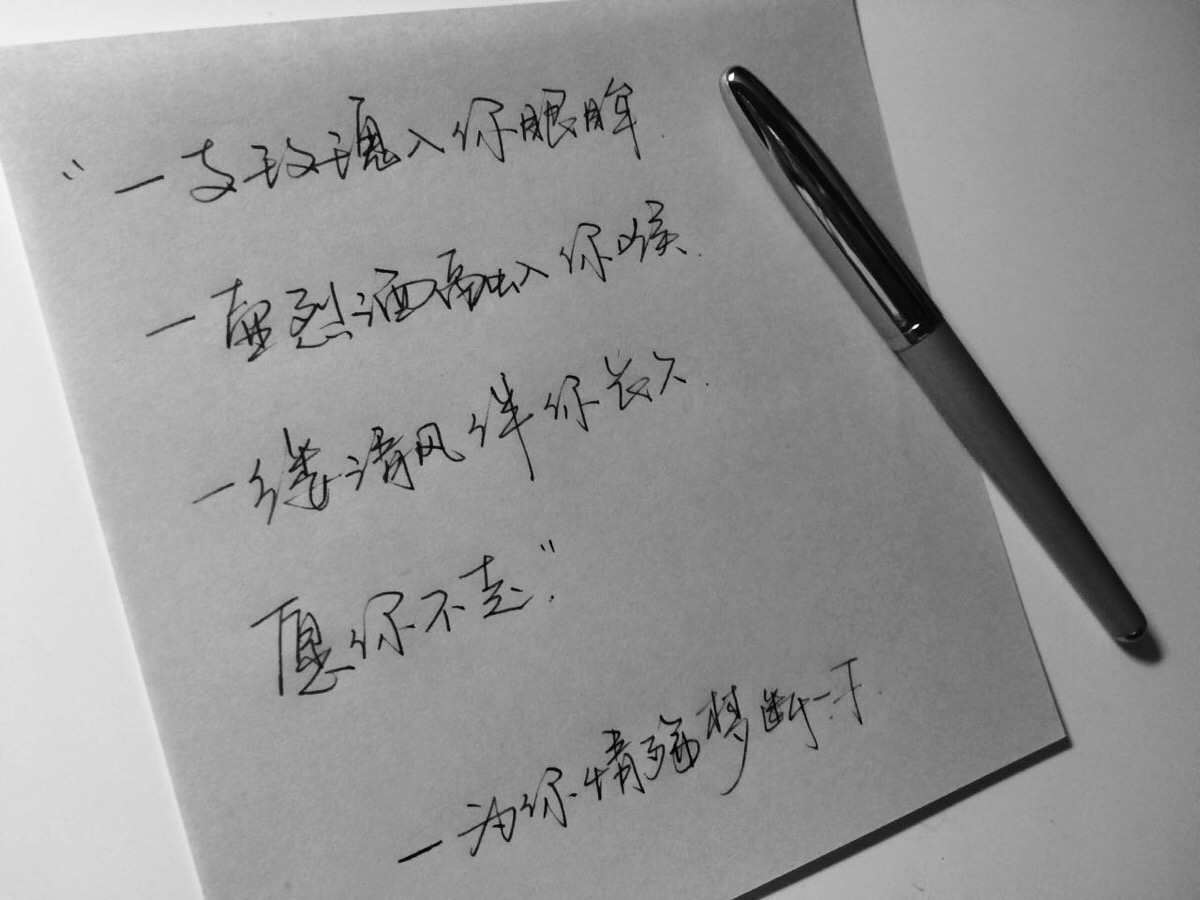 "一支玫瑰入你眼眸.
一壶烈酒融入你喉.
一缕清风伴你长久.
愿你不走".
—为你情梦断